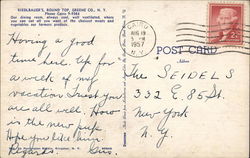 RIEDLBAUER'S, ROUND TOP, GREENE CO., N. Y.
Our dining room, always cool, well ventilated, where
you can eat all you want of the choicest meats and
vegetables our farmers produce.
CAIRO
AUG 19
1957
N.Y.
POST CARD
Having a good
time here. Up for
a week of my
vacation. Trust you
are all well. How
is the new pup.
Hope you like him.
Regards. Geo.
The SEIDELS
332 E. 85 St
New York
N.Y.